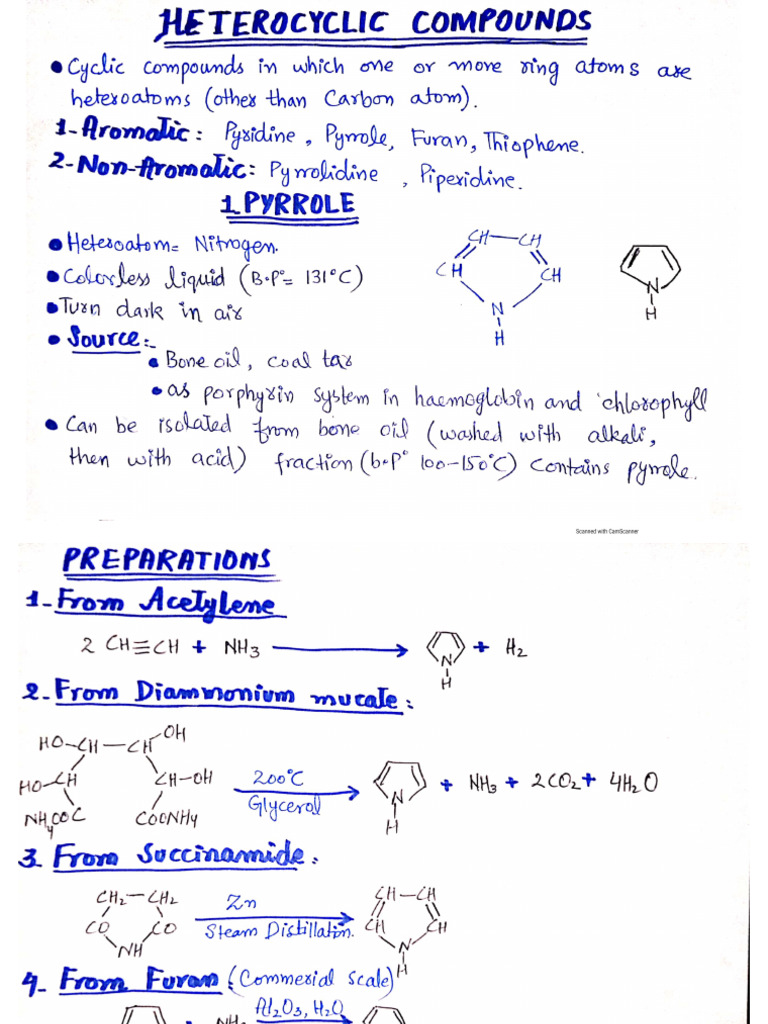 HETEROCYCLIC COMPOUNDS
• Cyclic compounds in which one or more ring atoms are
heteroatoms (other than Carbon atom).
1-Aromatic: Pyridine, Pyrrole, Furan, Thiophene.
2-Non-Aromatic: Pyrrolidine, Piperidine.
1 PYRROLE
• Heteroatom= Nitrogen.
• Colorless liquid (B.P°= 131°C)
• Turn dark in air
CH—CH
CH CH
N
H
N
H
• Source:-
• Bone oil, coal tar
• as porphyrin system in haemoglobin and chlorophyll
• Can be isolated from bone oil (washed with alkali,
then with acid) fraction (b.P° 100-150°C) Contains pyrrole.
Scanned with CamScanner
PREPARATIONS
1-From Acetylene
2 CH≡CH + NH3 → N H + H2
2-From Diammonium mucate:
HO-CH—CH OH
HO-CH CH-OH
NH4COC COONH4
200°C
Glycerol
N
H
+ NH3 + 2CO2 + 4H2O
3 From Succinamide:
CH2—CH2
CO CO
NH
Zn
Steam Distillation.
CH—CH
CH CH
N
H
4- From Furan (Commerial scale)
+ NH3
Al2O3, H2O